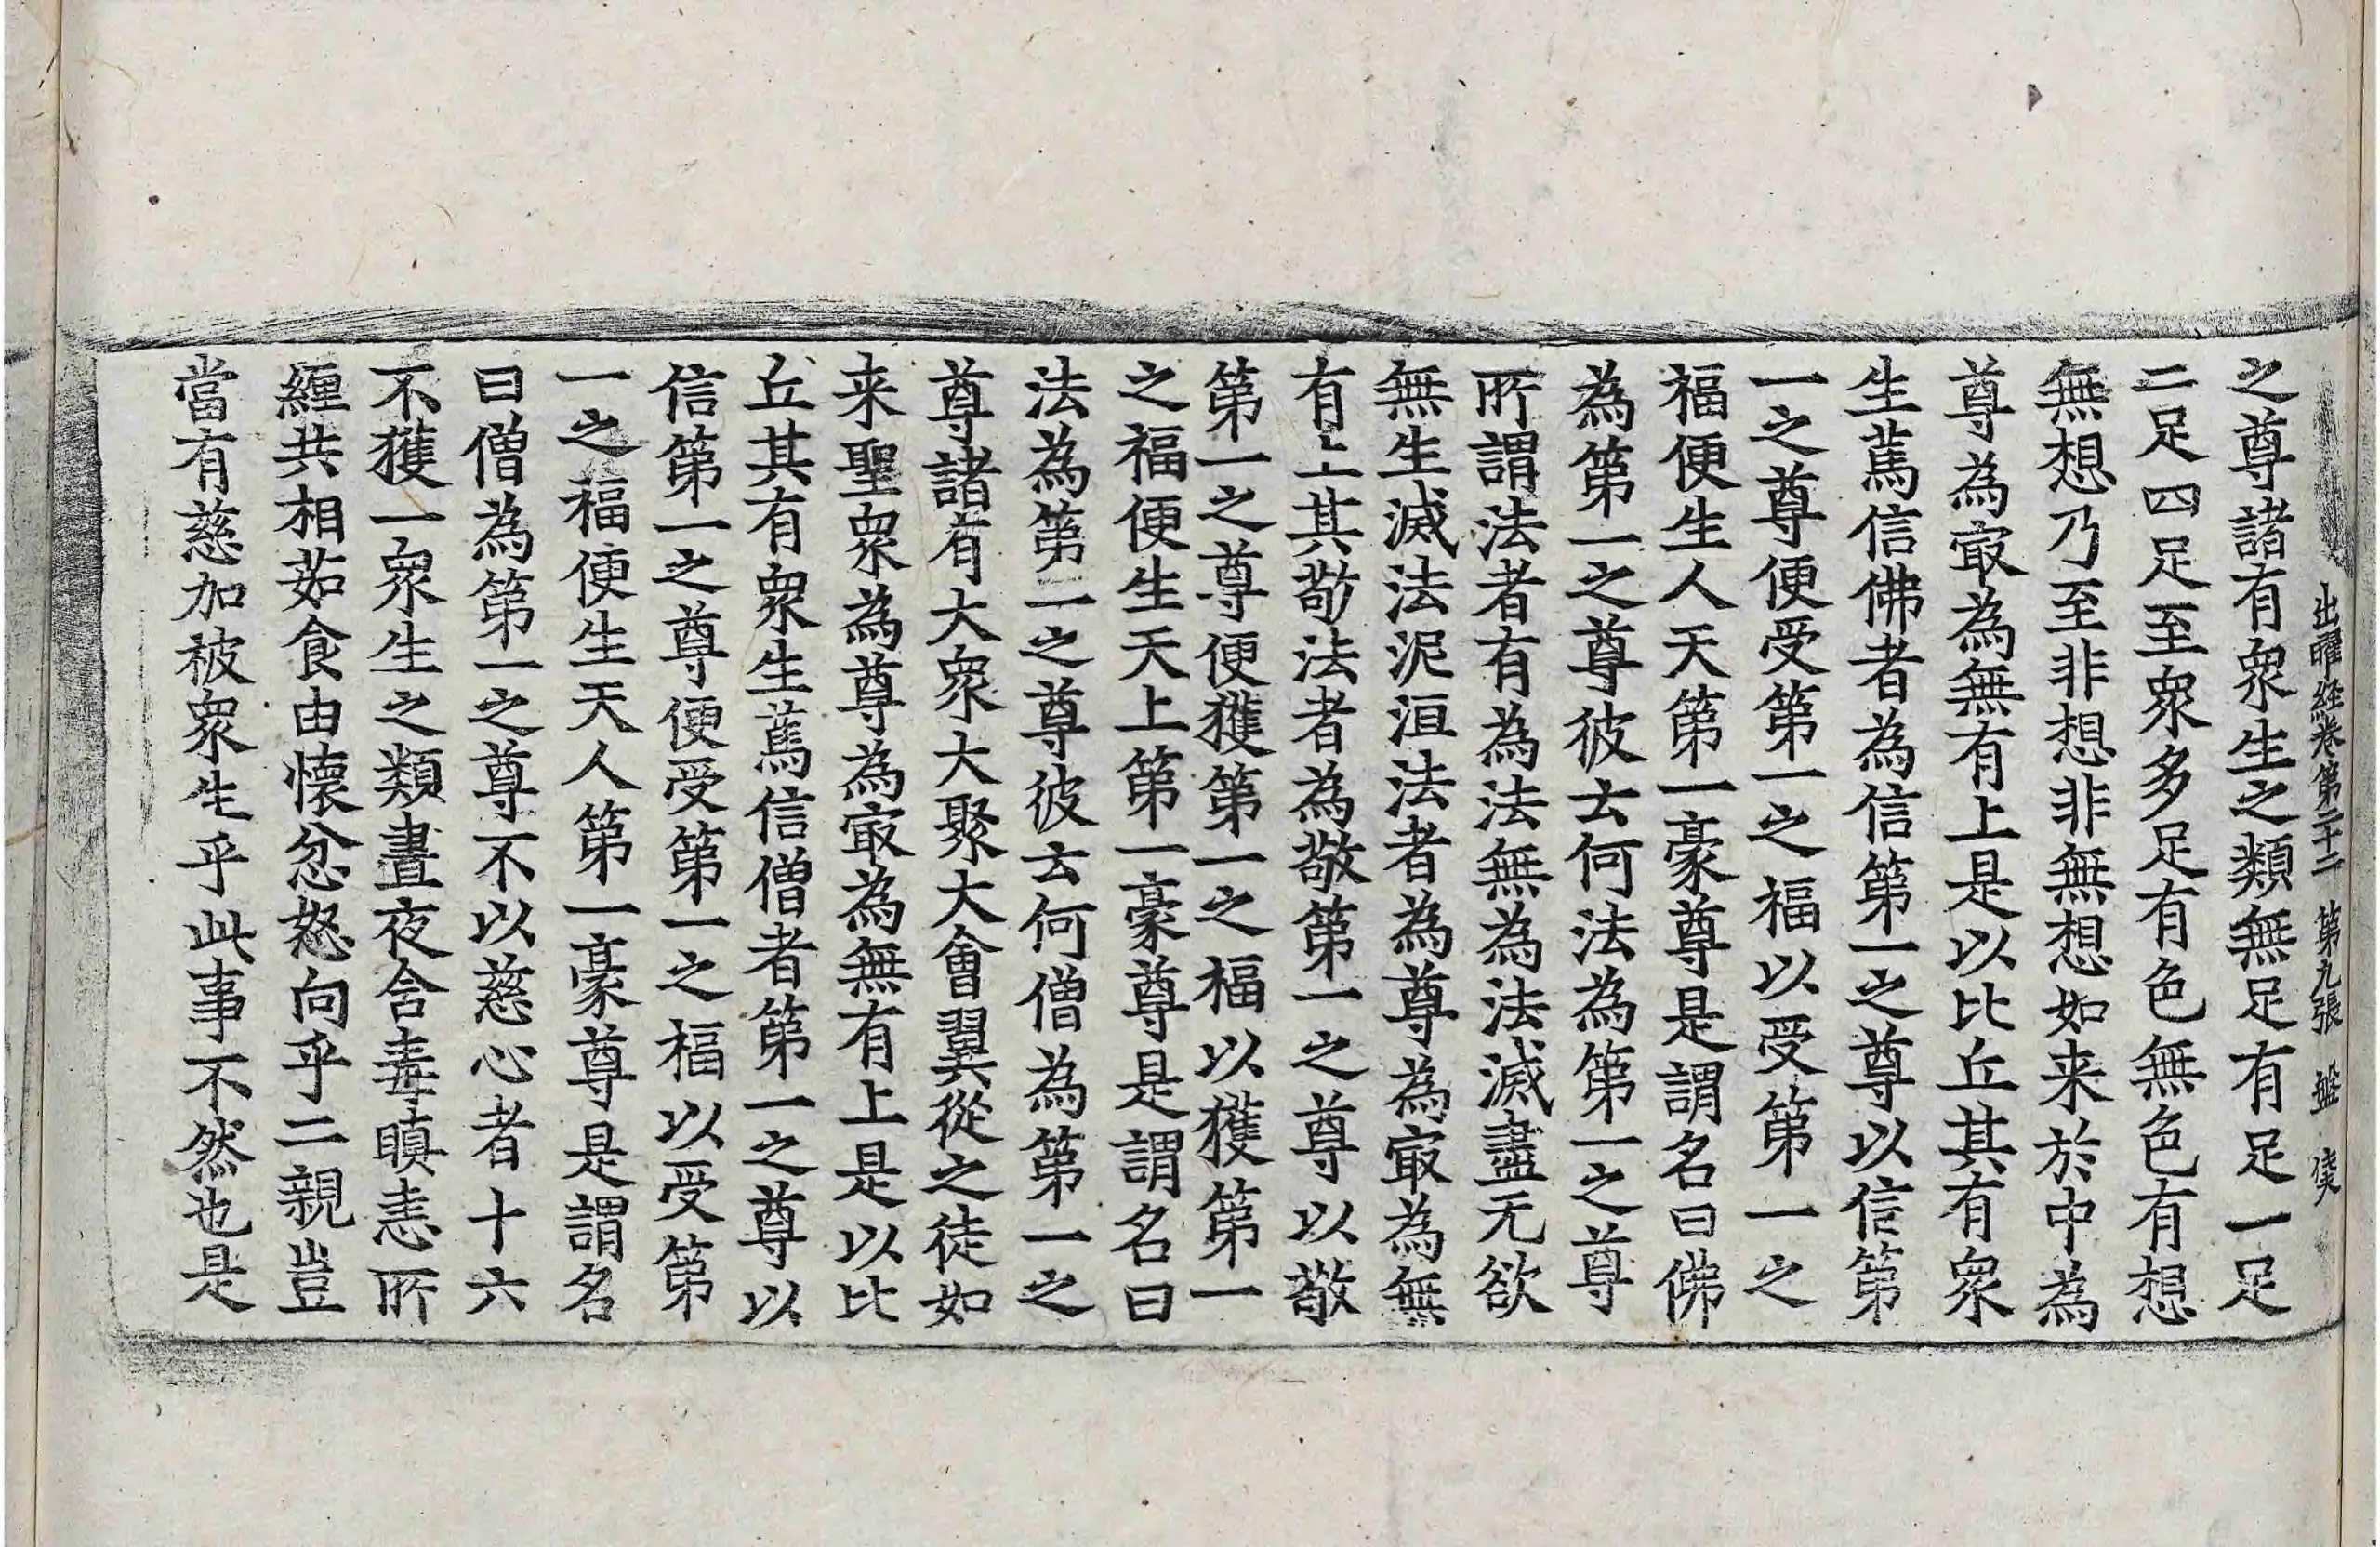 出曜経卷第二十二 第九張 盤
之尊諸有衆生之類無足有足一足
二足四足至衆多足有色無色有想
無想乃至非想非無想如来於中為
尊為㝡為無有上是以比丘其有衆
生篤信佛者為信第一之尊以信第
一之尊便受第一之福以受第一之
福便生人天第一豪尊是謂名曰佛
為第一之尊彼云何法為第一之尊
所謂法者有為法無為法滅盡无欲
無生滅法泥洹法者為尊為㝡為無
有上其敬法者為敬第一之尊以敬
第一之尊便獲第一之福以獲第一
之福便生天上第一豪尊是謂名曰
法為第一之尊彼云何僧為第一之
尊諸有大衆大聚大會翼從之徒如
来聖衆為尊為㝡為無有上是以比
丘其有衆生篤信僧者第一之尊以
信第一之尊便受第一之福以受第
一之福便生天人第一豪尊是謂名
曰僧為第一之尊不以慈心者十六
不獲一衆生之類晝夜含毒瞋恚所
纒共相茹食由懐忿怒向乎二親豈
當有慈加被衆生乎此事不然也是